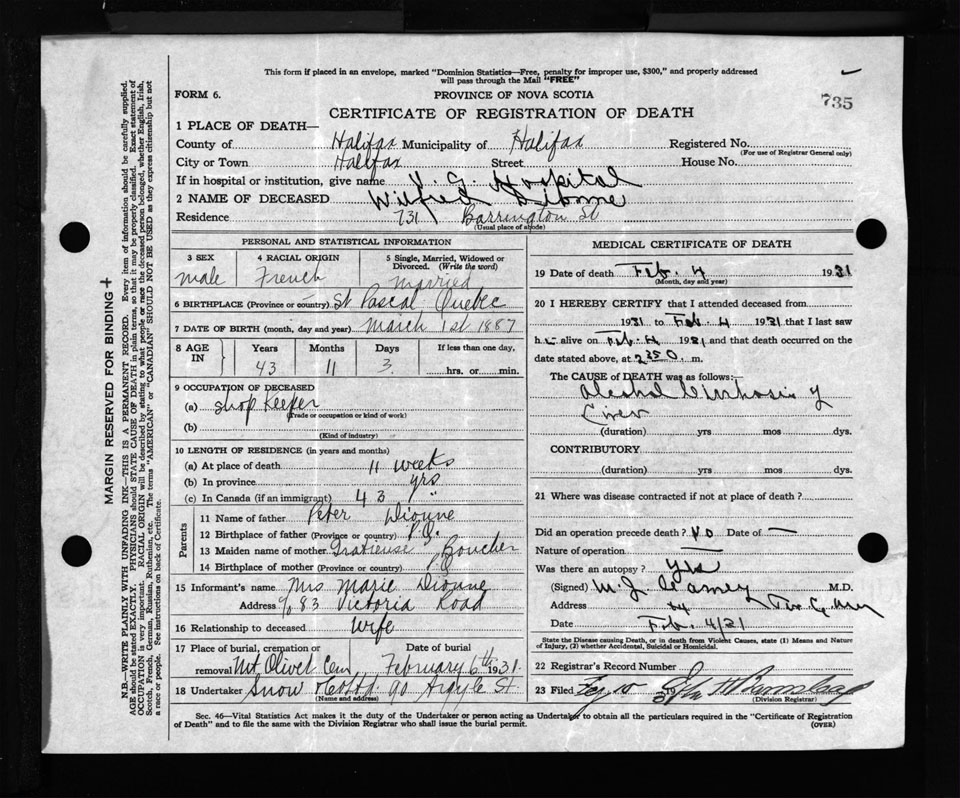 This form if placed in an envelope, marked "Dominion Statistics—Free, penalty for improper use, $300," and properly addressed
will pass through the Mail "FREE"
FORM 6.
PROVINCE OF NOVA SCOTIA
735
CERTIFICATE OF REGISTRATION OF DEATH
1 PLACE OF DEATH—
County of Halifax Municipality of Halifax Registered No.
(For use of Registrar General only)
City or Town Halifax Street House No.
If in hospital or institution, give name V. G. Hospital
2 NAME OF DECEASED Wilfred Dionne
Residence 731 Barrington St
(Usual place of abode)
MARGIN RESERVED FOR BINDING
N.B.—WRITE PLAINLY WITH UNFADING INK—THIS IS A PERMANENT RECORD. Every item of information should be carefully supplied.
AGE should be stated EXACTLY. PHYSICIANS should STATE CAUSE OF DEATH in plain terms, so that it may be properly classified. Exact statement of
OCCUPATION is very important. RACIAL ORIGIN will be described by stating to what people or race the deceased person belonged, whether English, Irish,
Scotch, French, German, Russian, Ruthenian, etc. The terms "AMERICAN" or "CANADIAN" SHOULD NOT BE USED as they express citizenship but not
a race or people. See instructions on back of Certificate.
PERSONAL AND STATISTICAL INFORMATION
3 SEX
male
4 RACIAL ORIGIN
French
5 Single, Married, Widowed or
Divorced. (Write the word)
Married
6 BIRTHPLACE (Province or country) St Pascal Quebec
7 DATE OF BIRTH (month, day and year) March 1st 1887
8 AGE
IN
Years Months Days If less than one day,
43 11 3 hrs. or min.
9 OCCUPATION OF DECEASED
(a) Shop Keeper
(Trade or occupation or kind of work)
(b)
(Kind of industry)
10 LENGTH OF RESIDENCE (in years and months)
(a) At place of death 11 weeks
(b) In province yrs
(c) In Canada (if an immigrant) 43 "
Parents
11 Name of father Peter Dionne
12 Birthplace of father (Province or country) P.Q.
13 Maiden name of mother Gratieuse Boucher
14 Birthplace of mother (Province or country) P.Q
15 Informant's name Mrs Marie Dionne
Address % 83 Victoria Road
16 Relationship to deceased Wife
17 Place of burial, cremation or Date of burial
removal Mt Olivet Cem February 6th 1931
18 Undertaker Snow & Co Ltd 90 Argyle St
(Name and address)
MEDICAL CERTIFICATE OF DEATH
19 Date of death Feb. 4 1931
(Month, day and year)
20 I HEREBY CERTIFY that I attended deceased from
1931 to Feb. 4 1931 that I last saw
h alive on Feb. 4 1931 and that death occurred on the
date stated above, at m.
The CAUSE of DEATH was as follows:—
Alcohol Cirrhosis of
Liver
(duration) yrs mos dys.
CONTRIBUTORY
(duration) yrs mos dys.
21 Where was disease contracted if not at place of death?
Did an operation precede death? No Date of —
Nature of operation —
Was there an autopsy? yes
(Signed) M. J. M.D.
Address
Date Feb. 4/31
State the Disease causing Death, or in death from Violent Causes, state (1) Means and Nature
of Injury, (2) whether Accidental, Suicidal or Homicidal.
22 Registrar's Record Number
23 Filed 19
(Division Registrar)
Sec. 46—Vital Statistics Act makes it the duty of the Undertaker or person acting as Undertaker to obtain all the particulars required in the "Certificate of Registration
of Death" and to file the same with the Division Registrar who shall issue the burial permit. (OVER)